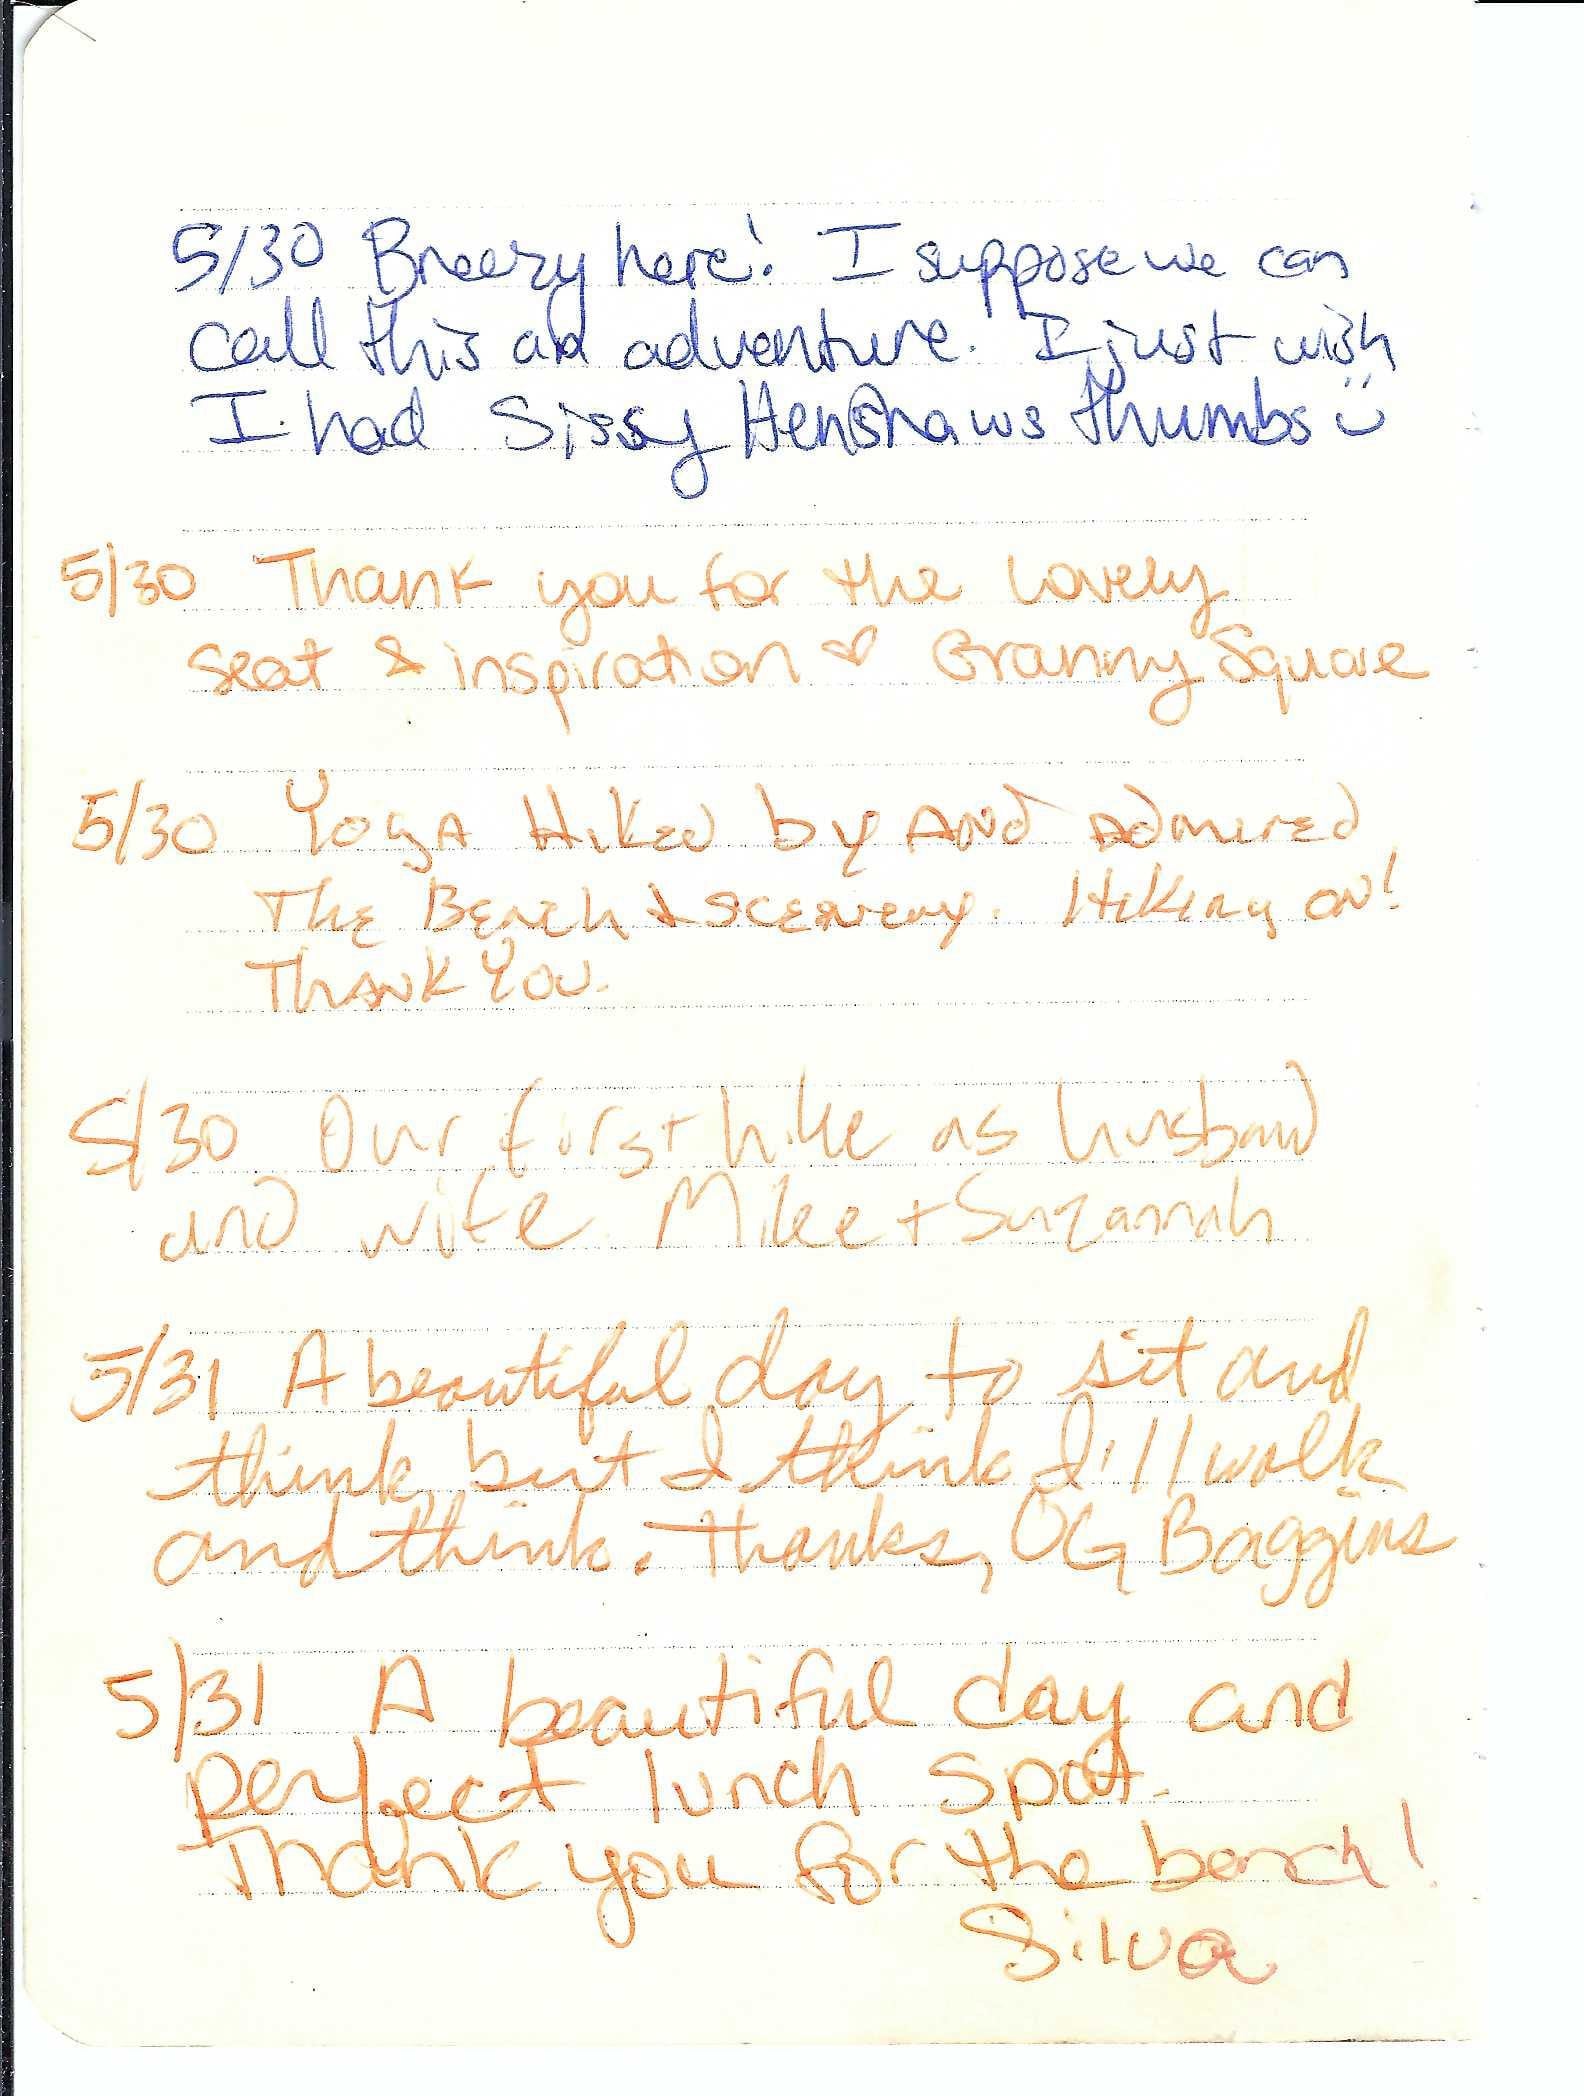 5/30 Breezy here! I suppose we can
call this an adventure. I just wish
I had Sissy Henshaws thumbs :)
5/30 Thank you for the lovely
seat & inspiration ♡ Granny Square
5/30 Yoga Hiked by AND Admired
The Bench & scenery. Hiking on!
Thank You.
5/30 Our first hike as husband
and wife. Mike + Suzannah
5/31 A beautiful day to sit and
think, but I think I'll walk
and think. Thanks, OG Baggins
5/31 A beautiful day and
perfect lunch spot.
Thank you for the bench!
Silva